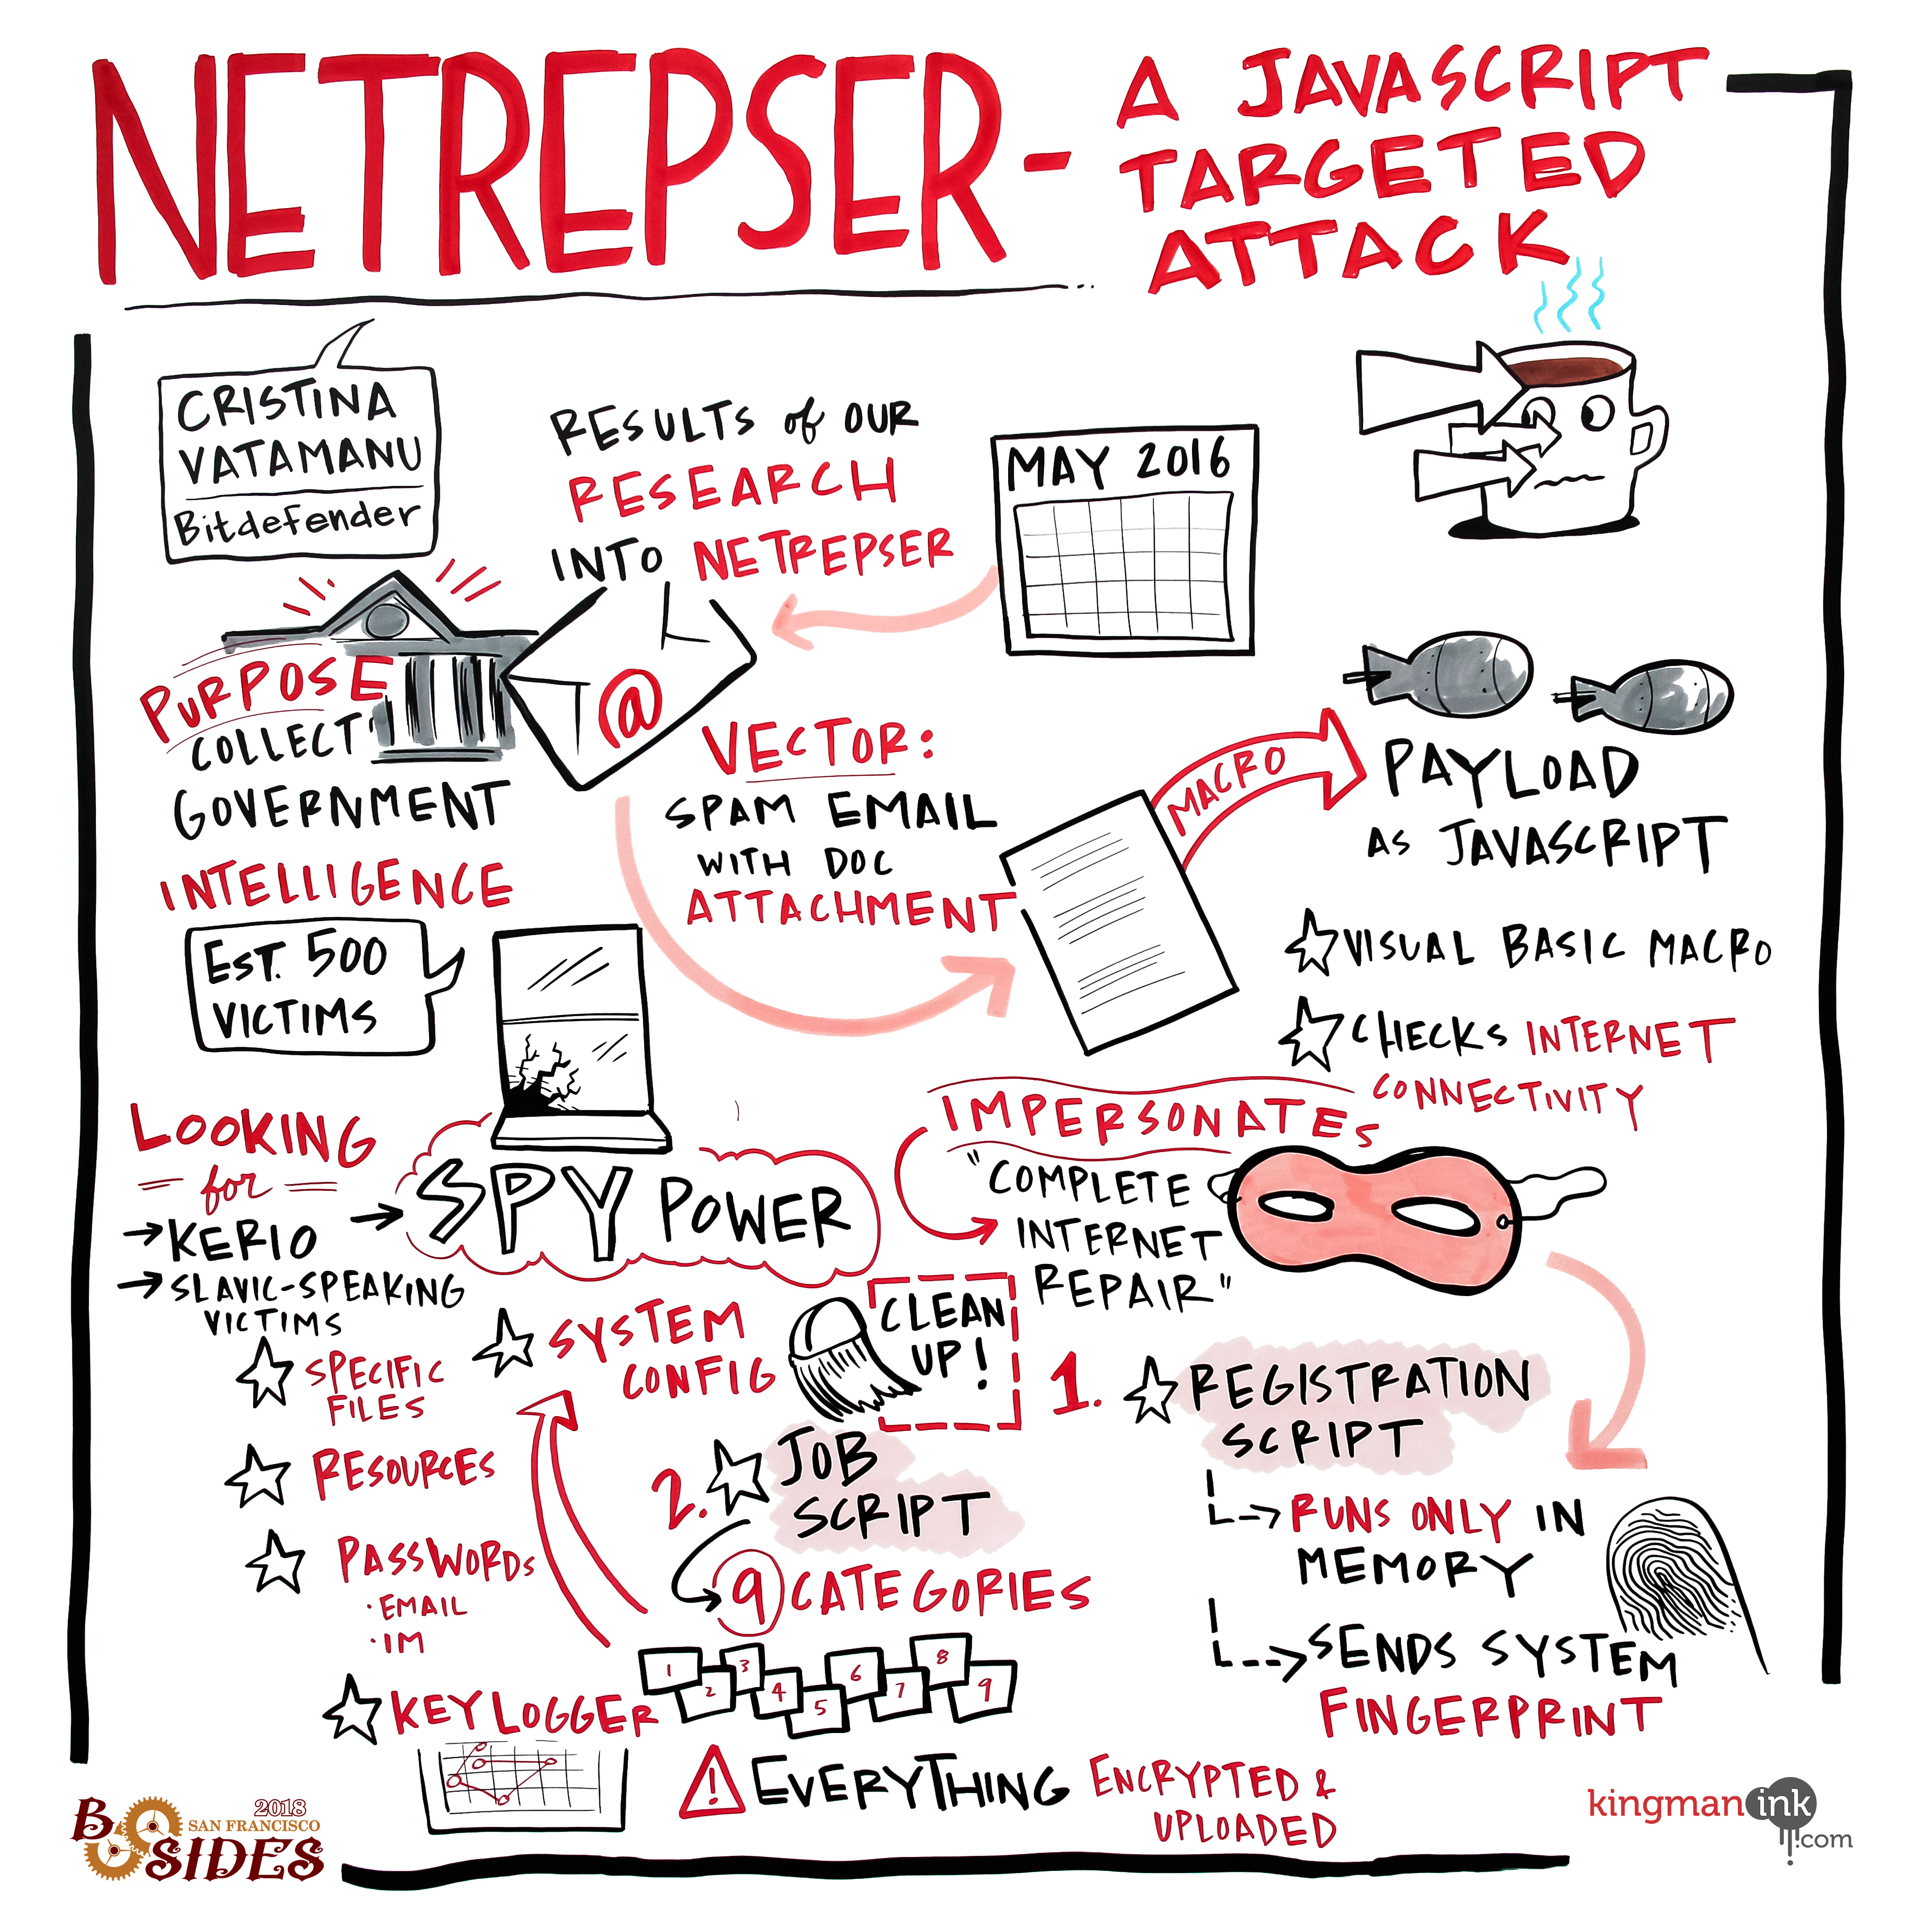 NETREPSER -
A JAVASCRIPT
TARGETED
ATTACK
CRISTINA
VATAMANU
Bitdefender
RESULTS of OUR
RESEARCH
INTO NETREPSER
MAY 2016
PURPOSE
COLLECT
GOVERNMENT
INTELLIGENCE
@
VECTOR:
SPAM EMAIL
WITH DOC
ATTACHMENT
MACRO
PAYLOAD
AS JAVASCRIPT
VISUAL BASIC MACRO
CHECKS INTERNET
CONNECTIVITY
EST. 500
VICTIMS
IMPERSONATES
"COMPLETE
INTERNET
REPAIR"
LOOKING
for
→ KERIO
→ SLAVIC-SPEAKING
VICTIMS
→ SPY POWER
SPECIFIC
FILES
RESOURCES
PASSWORDS
· EMAIL
· IM
KEYLOGGER
SYSTEM
CONFIG
CLEAN
UP!
1. REGISTRATION
SCRIPT
RUNS ONLY IN
MEMORY
SENDS SYSTEM
FINGERPRINT
2. JOB
SCRIPT
9 CATEGORIES
1 2 3 4 5 6 7 8 9
! EVERYTHING ENCRYPTED &
UPLOADED
2018
SAN FRANCISCO
BSIDES
kingman ink
.com